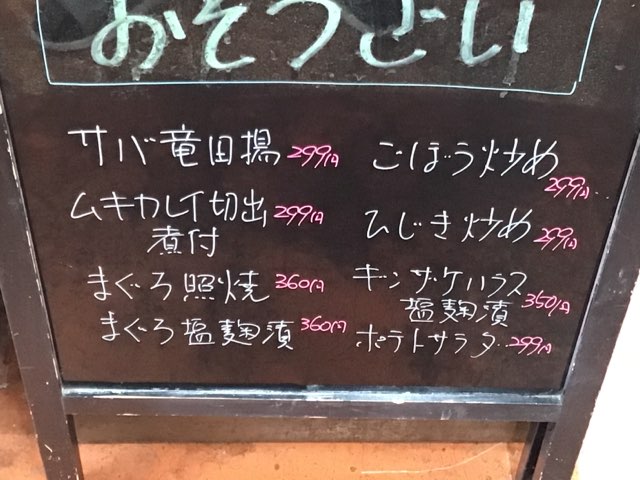 おそうざい
サバ竜田揚 299円
ムキカレイ切出 299円
煮付
まぐろ照焼 360円
まぐろ塩麹漬 360円
ごぼう炒め
299円
ひじき炒め 299円
ギンザケハラス
塩麹漬 350円
ポテトサラダ 299円